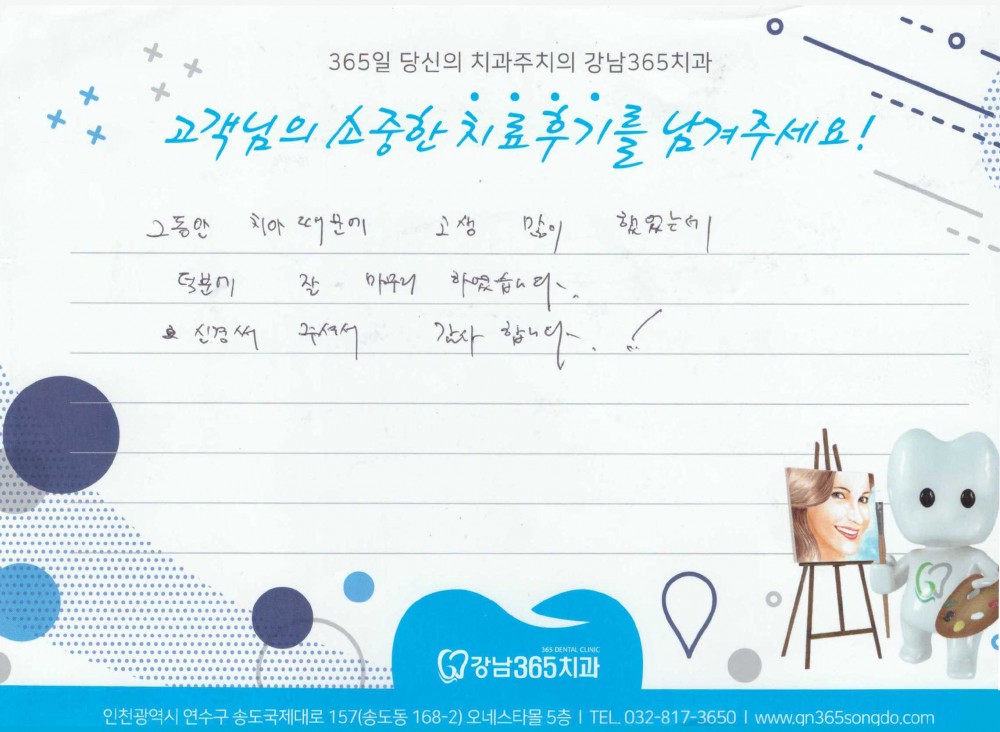 365일 당신의 치과주치의 강남365치과
고객님의 소중한 치료후기를 남겨주세요!
그동안 치아 때문에 고생 많이 했었는데
덕분에 잘 마무리 하였습니다.
신경써 주셔서 감사 합니다. !
365 DENTAL CLINIC
강남365치과
인천광역시 연수구 송도국제대로 157(송도동 168-2) 오네스타몰 5층 | TEL. 032-817-3650 | www.gn365songdo.com